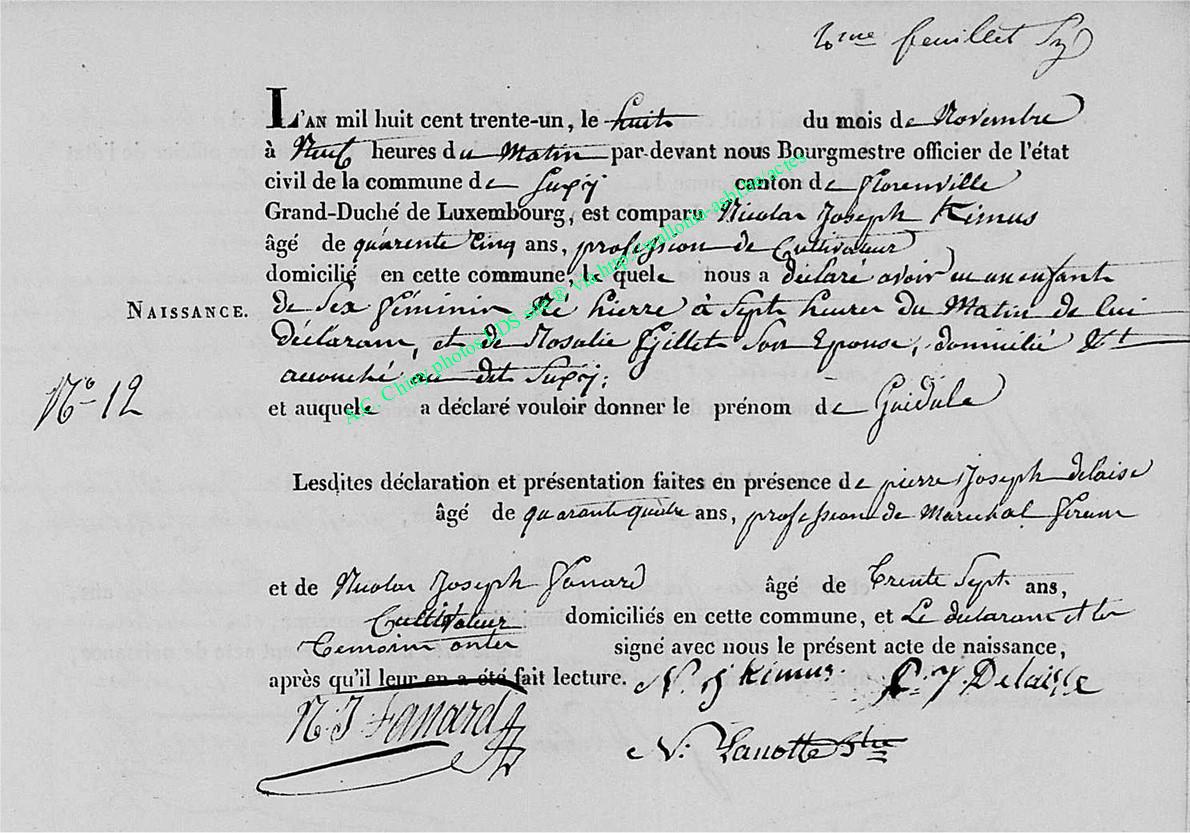 2me feuillet
L'AN mil huit cent trente-un, le huit du mois de Novembre
à Neuf heures du Matin par-devant nous Bourgmestre officier de l'état
civil de la commune de Suxy canton de florenville
Grand-Duché de Luxembourg, est comparu Nicolas Joseph Kimus
âgé de quarente Cinq ans, profession de Cultivateur
domicilié en cette commune, le quele nous a déclaré avoir eu un enfant
NAISSANCE. de Sex féminin Né hierre à Sept heures du Matin de lui
déclarant, et de Rosalie Gillet Son Epouse, domicilié Et
N° 12 accouché au dit Suxy;
et auquele a déclaré vouloir donner le prénom de Guidule
Lesdites déclaration et présentation faites en présence de pierre Joseph delaise
âgé de quarante quatre ans, profession de Maréchal ferant
et de Nicolas Joseph fanard âgé de Trente Sept ans,
Cultivateur domiciliés en cette commune, et Le déclarant et les
Temoins onter signé avec nous le présent acte de naissance,
après qu'il leur en a été fait lecture. N. J Kimus P. J Delaisse
N. J fanard
N. Lanotte Btre
A.C. Chiny photos LDS site® via http://wallonia-asbl.be/actes